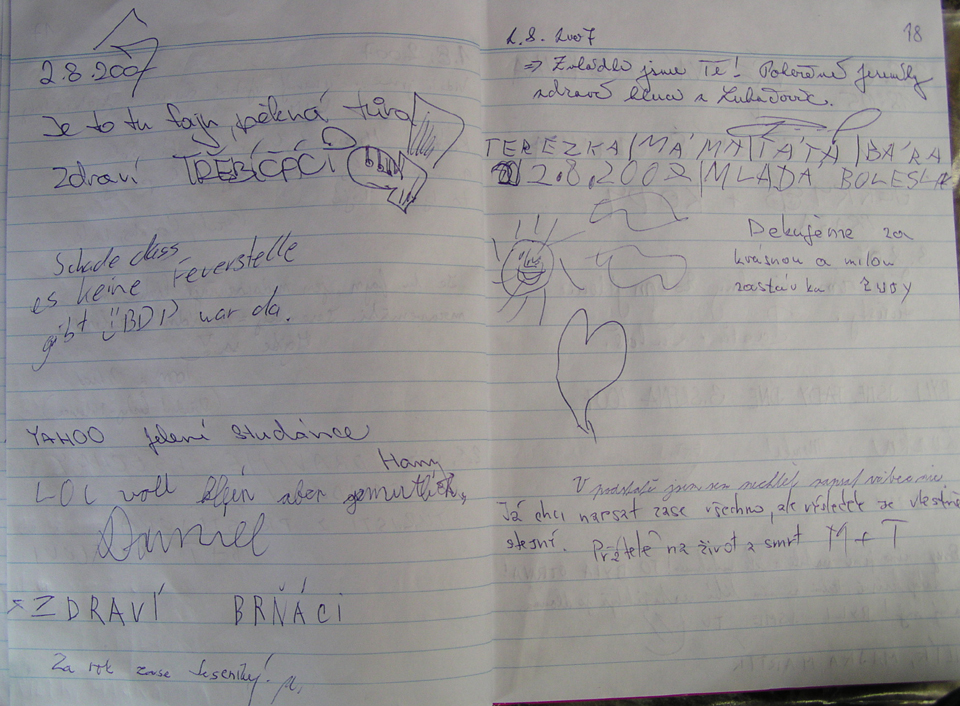 2.8.2007
Je to tu fajn, pěkná túra
Zdraví TŘEBÍČÁCI
Schade dass
es keine Feuerstelle
gibt BDP war da.
YAHOO jelení studánce
Hany
LOL voll klein aber gemütlich,
Daniel
ZDRAVÍ BRŇÁCI
Za rok zase Jeseníky!
18
2.8.2007
⇒ Zvládli jsme Tě! Jeseníky
zdraví a
TEREZKA|MÁMA|TÁTA|BÁRA
2.8.2002|MLADÁ BOLESLAV
Dekujeme za
krásnou a milou
zastávku
V jsem sem nechtěl napsat vůbec nic.
Já chci napsat zase všechno, ale výsledek je vlastně
stejný. Přátelé na život a smrt M + T